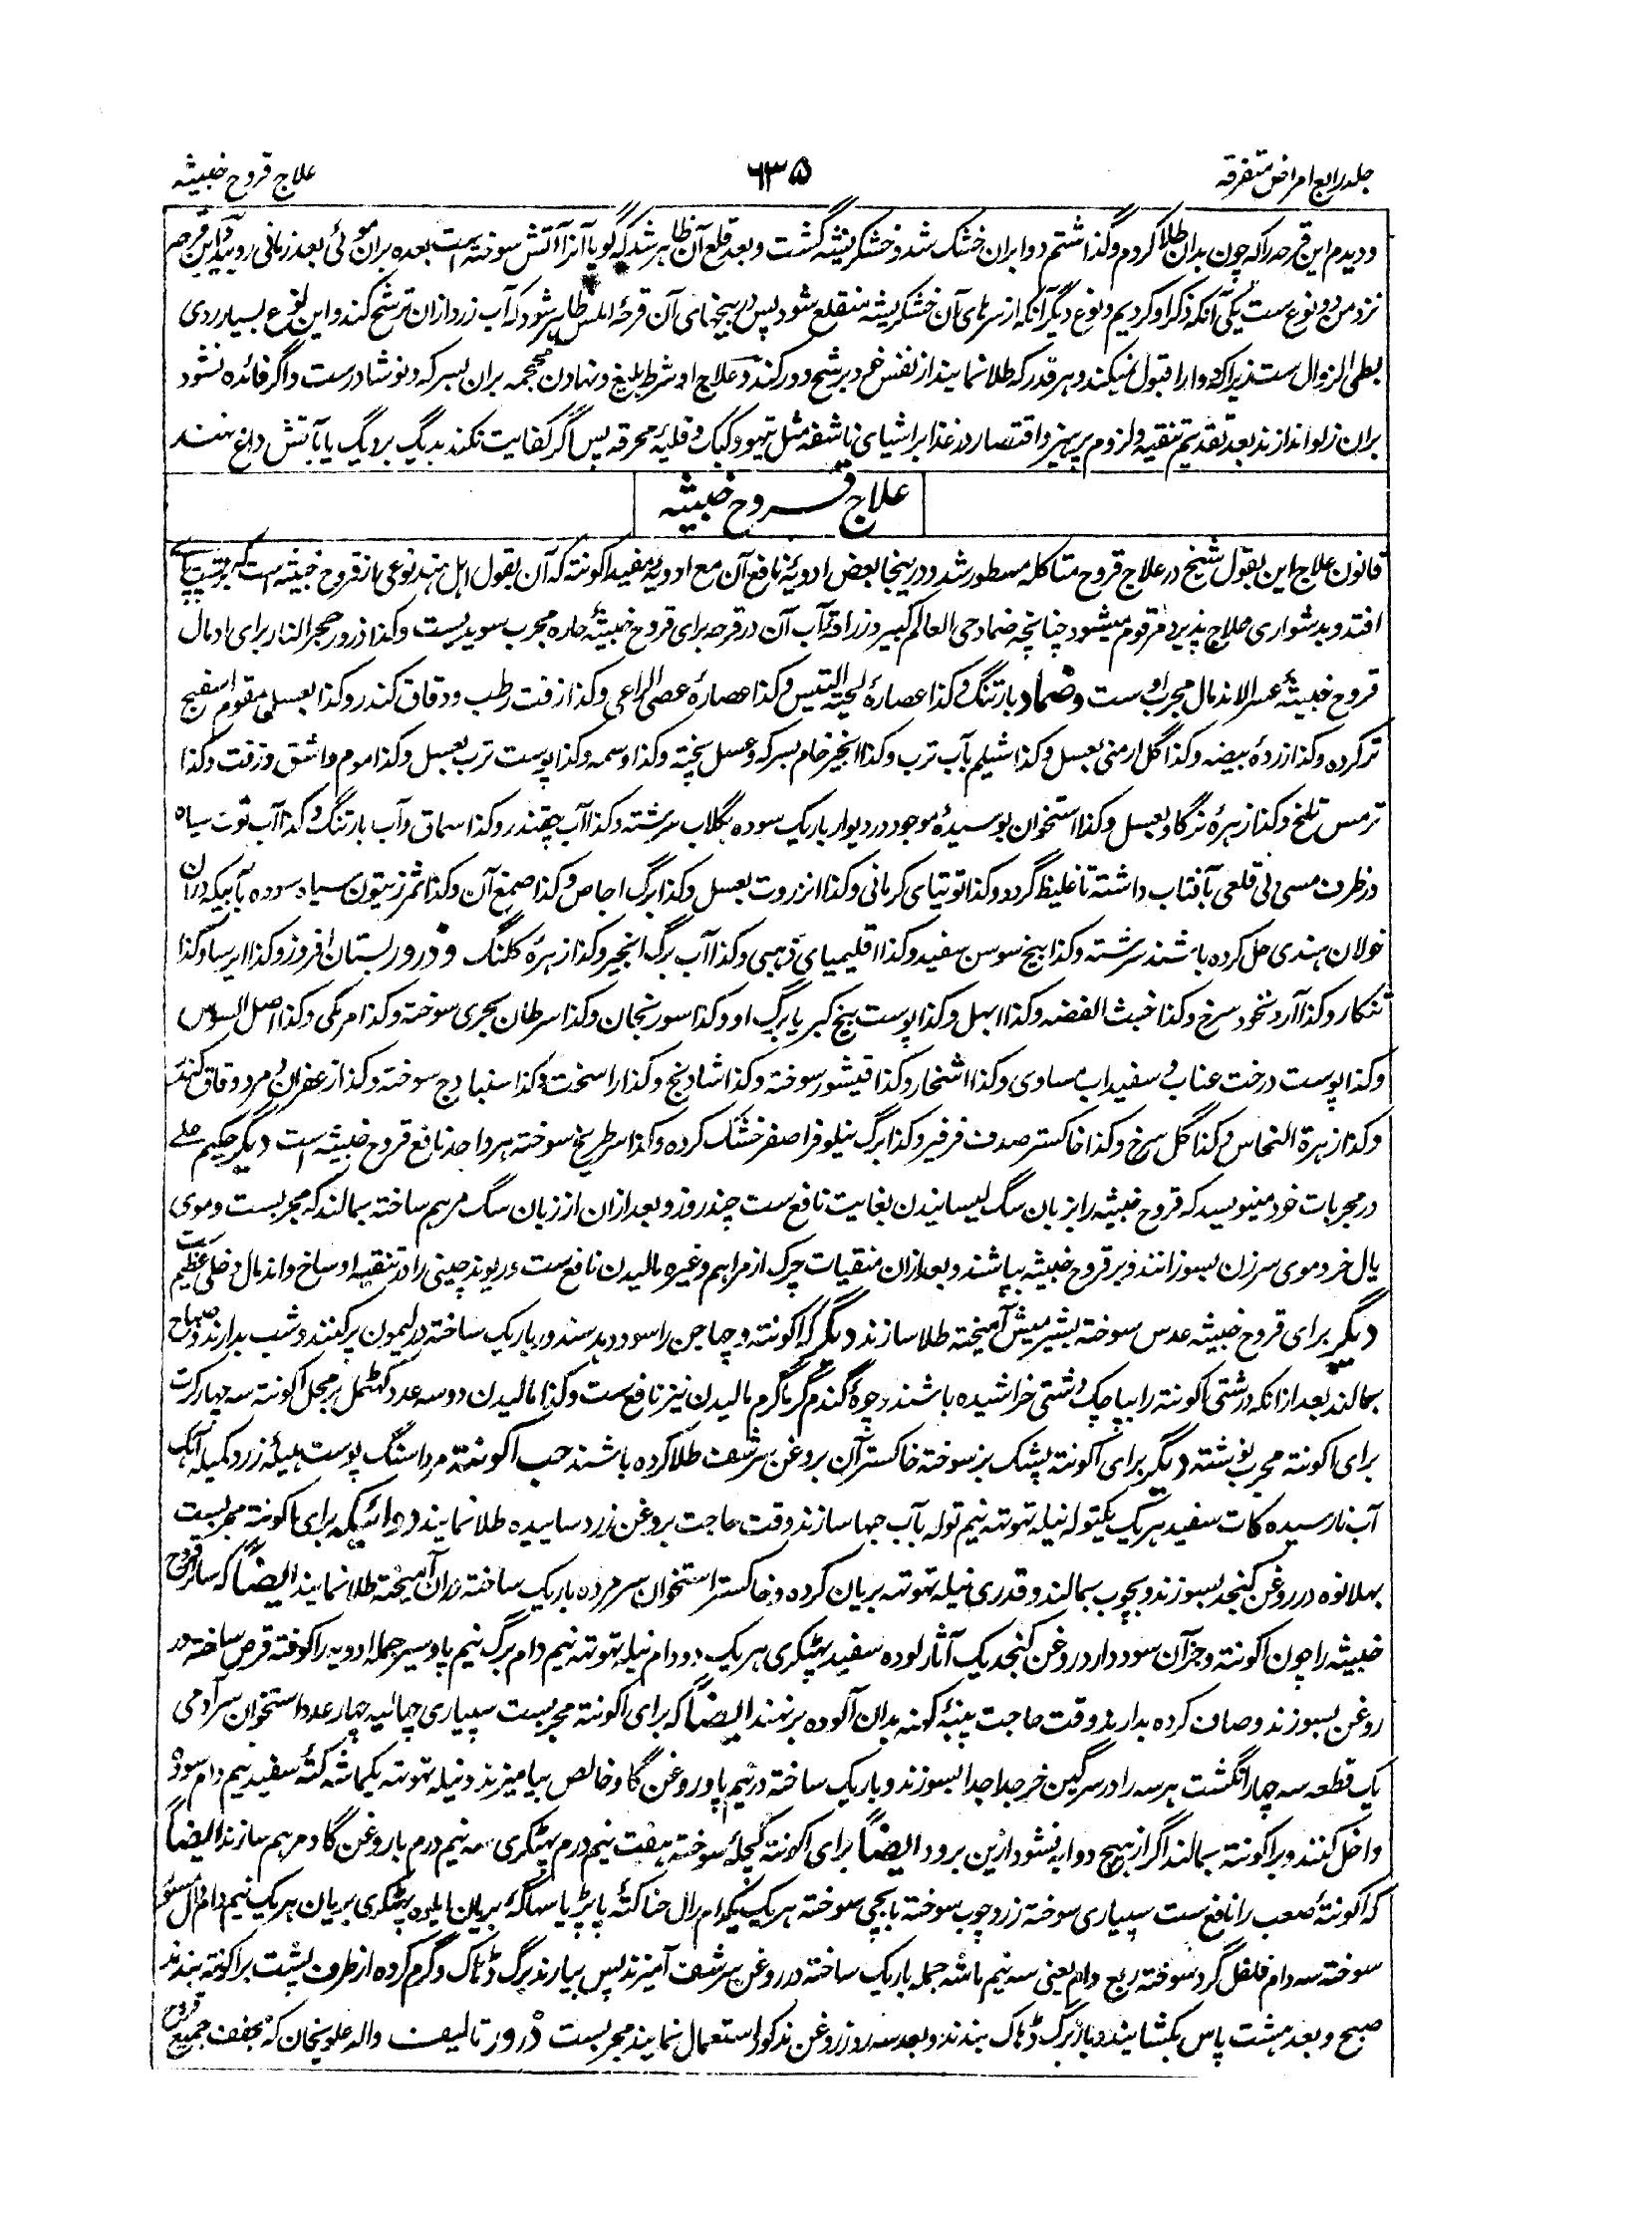 جلد رابع امراض متفرقه
۶۳۵
علاج قروح خبیثه
و دیدم این قرحه را که چون بدان طلا کردم و گذاشتم دوا بران خشک شد و خشکریشه گشت و بعد قلع آن ظاهر شد که گویا آنرا آتش سوخته است بعده بران موئی بعد زمانی روئید و این قرحه
نزد من دو نوع ست یکی آنکه ذکر او کردیم و نوع دیگر آنکه از سرهای آن خشکریشه منقلع شود پس در بیخهای آن قرحهٔ املس ظاهر شود که آب زرد ازان ترشح کند و این نوع بسیار ردی
بطی الزوال ست زیرا که دوا را قبول نمیکند و هر قدر که طلا نمایند از نفس خود برشح دور کند و علاج او شرط بلیغ و نهادن محجمه بران بسرکه و نوشادرست و اگر فائده نشود
بران زلو اندازند بعد تقدیم تنقیه و لزوم پرهیز و اقتصار در غذا بر اشیای ناشفه مثل تیهو و کبک و قلیهٔ محرقه پس اگر کفایت نکند بدیگ بردیگ یا بآتش داغ نهند
علاج قروح خبیثه
قانون علاج این بقول شیخ در علاج قروح متاکله مسطور شد و درینجا بعض ادویهٔ نافع آن مع ادویهٔ مفید اکوته که آن بقول اهل هند نوعی از قروح خبیثه است که بر پشت پا
افتد و بدشواری علاج پذیرد مرقوم میشود چنانچه ضماد حی العالم کبیر و زراقه آب آن در قرحه برای قروح خبیثهٔ حاره مجرب سویدیست و کذا ذرور حجر النار برای ادمال
قروح خبیثهٔ عسر الاندمال مجرب اوست و ضماد بارتنگ و کذا عصارهٔ لحیة التیس و کذا عصارهٔ عصی الراعی و کذا زفت رطب و دقاق کندر و کذا بعسل مقوم اسفنج
تر کرده و کذا زردهٔ بیضه و کذا گل ارمنی بعسل و کذا شیلم بآب ترب و کذا انجیر خام بسرکه و عسل پخته و کذا وسمه و کذا پوست ترب بعسل و کذا موم و اشق و زفت و کذا
ترمس تلخ و کذا زهرهٔ نرگاو بعسل و کذا استخوان بوسیدهٔ موجود در دیوار باریک سوده بگلاب سرشته و کذا آب چقندر و کذا سماق و آب بارتنگ و کذا آب توت سیاه
در ظرف مسی بی قلعی بآفتاب داشته تا غلیظ گردد و کذا توتیای کرمانی و کذا انزروت بعسل و کذا برگ اجاص و کذا صمغ آن و کذا ثمر زیتون سیاه سوده بآبیکه دران
خولان هندی حل کرده باشند سرشته و کذا بیخ سوسن سفید و کذا اقلیمیای ذهبی و کذا آب برگ انجیر و کذا زهرهٔ کلنگ و ذرور بستان افروز و کذا ایرسا و کذا
تنکار و کذا آرد نخود سرخ و کذا خبث الفضه و کذا ابهل و کذا پوست بیخ کبر یا برگ او و کذا سورنجان و کذا سرطان بحری سوخته و کذا مر مکی و کذا اصل السوس
و کذا پوست درخت عناب و سفیداب مساوی و کذا اشخار و کذا قیشور سوخته و کذا شادنج و کذا راسخت و کذا سنباذج سوخته و کذا زعفران و مر و دقاق کندر
و کذا زهرة النحاس و کذا گل سرخ و کذا خاکستر صدف فرفیر و کذا برگ نیلوفر اصفر خشک کرده و کذا اسطریخ سوخته هر واحد نافع قروح خبیثه است دیگر حکیم علی
در مجربات خود مینویسد که قروح خبیثه را بزبان سگ لیسانیدن بغایت نافع ست چند روز و بعد ازان از زبان سگ مرهم ساخته بمالند که مجربست و موی
یال خر و موی سر زن بسوزانند و بر قروح خبیثه بپاشند و بعد ازان منقیات چرک از مراهم وغیره مالیدن نافع ست و ریوند چینی را در تنقیه اوساخ و اندمال دخلی عظیم ست
دیگر برای قروح خبیثه عدس سوخته بشیر میش آمیخته طلا سازند دیگر که اکوته و چهاجن را سود دهد سندور باریک ساخته در لیمون پر کنند و شب بدارند و صباح
بمالند بعد ازانکه درشتی اکوته را بپاچک دشتی خراشیده باشند و چوهٔ گندم گرماگرم مالیدن نیز نافع ست و کذا مالیدن دو سه عدد کهٹمل بر محل اکوته سه چهار کرت
برای اکوته مجرب نوشته دیگر برای اکوته پشک بز سوخته خاکستر آن بروغن سرشف طلا کرده باشند حب اکوته مرداسنگ پوست هلیلهٔ زرد کمیله آهک
آب نارسیده کات سفید هر یک یکتوله نیله تهوتهه نیم توله بآب حبها سازند وقت حاجت بروغن زرد ساییده طلا نمایند دوائیکه برای اکوته مجربست
بهلانوه در روغن کنجد بسوزند و بچوب بمالند و قدری نیله تهوتهه بریان کرده و خاکستر استخوان سر مرده باریک ساخته دران آمیخته طلا نمایند ایضاً که سائر قروح
خبیثه را چون اکوته و جز آن سود دارد روغن کنجد یک آثار لوده سفید پهٹکری هر یک دو دام نیله تهوتهه نیم دام برگ نیم پاو سیر جمله ادویه را کوفته قرص ساخته در
روغن بسوزند و صاف کرده بدارند و وقت حاجت پنبهٔ کهنه بدان آلوده برنهند ایضاً که برای اکوته مجربست سپیاری چهالیه چهار عدد استخوان سر آدمی
یک قطعه سه چهار انگشت هر سه را در سرگین خر جدا جدا بسوزند و باریک ساخته در نیم پاو روغن گاو خالص بیامیزند و نیله تهوتهه یکماشه کتهٔ سفید نیم دام سوده
داخل کنند و بر اکوته بمالند اگر از هیچ دوا به نشود ازین برود ایضاً برای اکوته کچلهٔ سوخته هفت نیم درم پهٹکری سه نیم درم با روغن گاو مرهم سازند ایضاً
که اکوتهٔ صعب را نافع ست سپیاری سوخته زرد چوب سوخته بابچی سوخته هر یک یکدام رال حنا کتهٔ پاپڑیا سهاگهٔ بریان ایلوه پهٹکری بریان هر یک نیم دام
سوخته سه دام فلفل گرد سوخته ربع دام یعنی سه نیم ماشه جمله باریک ساخته در روغن سرشف آمیزند پس بیارند برگ ڈهاک و گرم کرده از طرف پشت بر اکوته بندند
صبح و بعد هشت پاس بکشایند و باز برگ ڈهاک بندند و بعد سه روز روغن مذکور استعمال نمایند مجربست ذرور تالیف والد علویخان که مجفف جمیع قروح